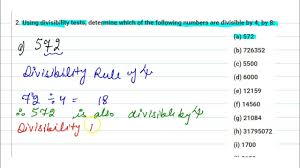 2. Using divisibility tests, determine which of the following numbers are divisible by 4, by 8:
(a) 572
(b) 726352
(c) 5500
(d) 6000
(e) 12159
(f) 14560
(g) 21084
(h) 31795072
(i) 1700
a) 572
Divisibility Rule of 4
72 ÷ 4 = 18
∴ 572 is also divisible by 4
Divisibility